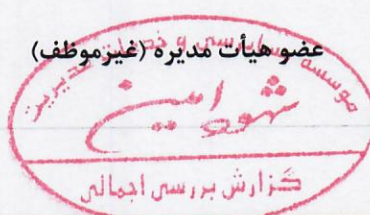 عضو هیأت مدیره (غیرموظف)
موسسه حسابرسی و خدمات مدیریت
شهود امین
گزارش بررسی اجمالی